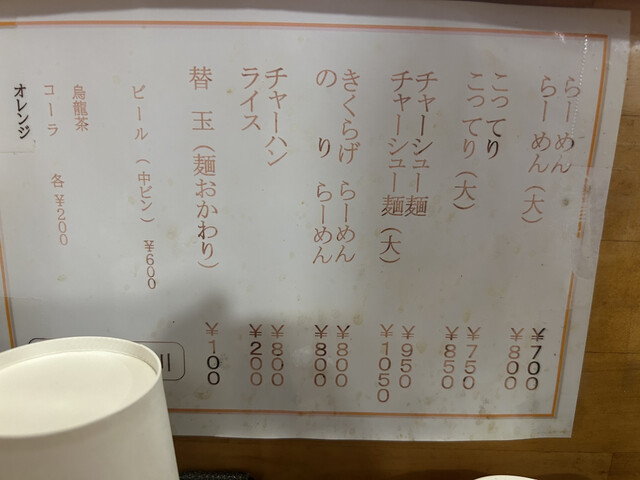 らーめん ¥700
らーめん(大) ¥800
こってり ¥750
こってり(大) ¥850
チャーシュー麺 ¥950
チャーシュー麺(大) ¥1050
きくらげ らーめん ¥800
のり らーめん ¥800
チャーハン ¥800
ライス ¥200
替玉(麺おかわり) ¥100
ビール(中ビン) ¥600
烏龍茶
コーラ 各¥200
オレンジ